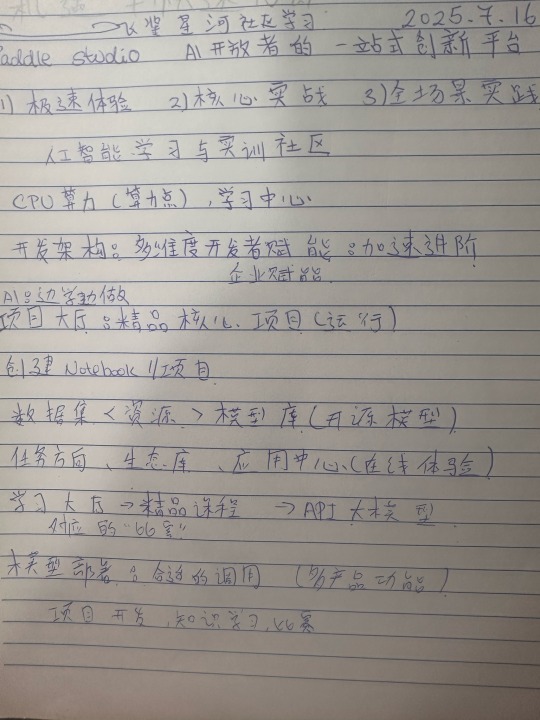 飞桨星河社区学习 2025.7.16
addle studio AI开发者的一站式创新平台
1) 极速体验 2)核心实战 3)全场景实践
人工智能学习与实训社区
CPU算力(算力点),学习中心.
开发架构:多维度开发者赋能:加速进阶
企业赋能.
AI:边学边做
项目大厅:精品核心项目(运行)
创建Notebook 项目
数据集<资源>模型库(开源模型)
任务方向、生态库、应用中心(在线体验)
学习大厅→精品课程 →API大模型
对应的"66案"
模型部署:合适的调用 (多产品功能)
项目开发,知识学习,